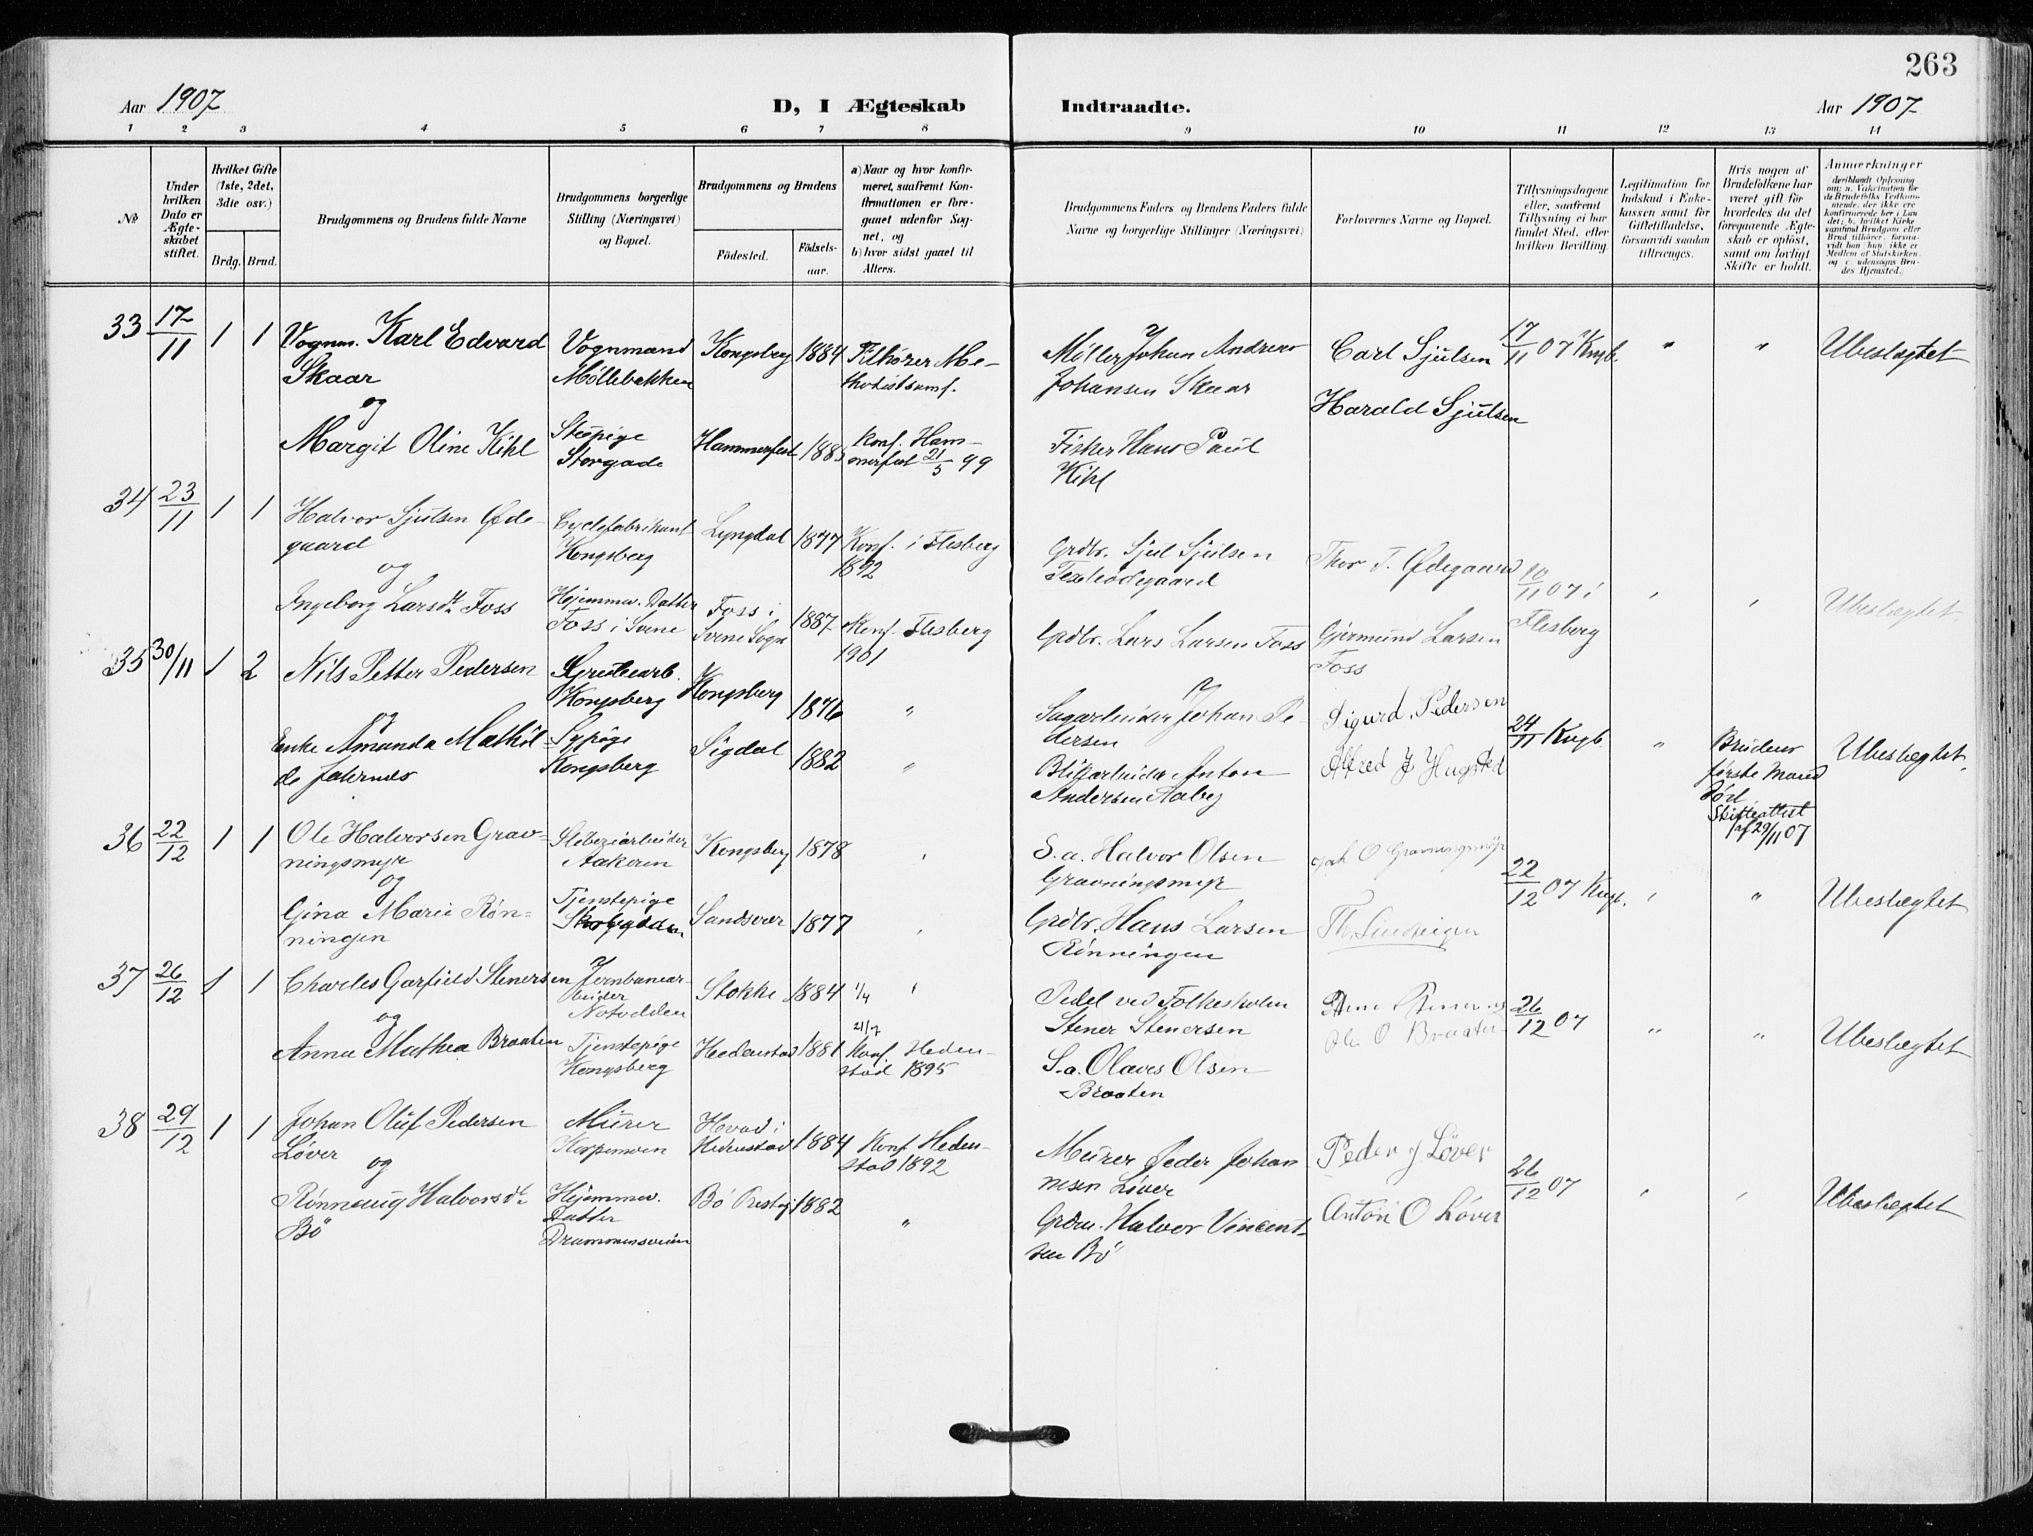 263
Aar 1907
D, I Ægteskab
Indtraadte.
Aar 1907
1 2 3 4 5 6 7 8 9 10 11 12 13 14
No
Under hvilken Dato er Ægteskabet stiftet.
Hvilket Gifte (1ste, 2det, 3die osv.)
Brdg. Brud.
Brudgommens og Brudens fulde Navne
Brudgommens borgerlige Stilling (Næringsvei) og Bopæl.
Brudgommens og Brudens
Födested.
Födselsaar.
a) Naar og hvor konfirmeret, saafremt Konfirmationen er foregaaet udenfor Sognet, og
b) hvor sidst gaaet til Alters.
Brudgommens Faders og Brudens Faders fulde Navne og borgerlige Stillinger (Næringsvei)
Forlovernes Navne og Bopæl.
Tillysningsdagene eller, saafremt Tillysning ei har fundet Sted, efter hvilken Bevilling.
Legitimation for Indskud i Enkekassen samt for Giftetilladelse, forsaavidt saadan tiltrænges.
Hvis nogen af Brudefolkene har været gift för hvorledes da det foregaaende Ægteskab er oplöst, samt om lovligt Skifte er holdt.
Anmerkninger
33 17/11 1 1 Vognm. Karl Edvard
Skaar
og
Margit Oline Kihl
Vognmand
Møllebakken
Kongsberg 1884
Tilhører Me-
thodistsamf.
Storgade
Hammerfest 1885
Konf. Ham-
merfest 21/5 99
Møller Johan Andreas
Johansen Skaar
Fisker Hans Paul
Kihl
Carl Sjulsen
Harald Sjulsen
17/11 07 Kngb.
" "
Ubeslægtet
34 23/11 1 1 Halvor Sjulsen Øde-
gaard
og
Ingeborg Larsdt. Foss
Cyclefabrikant
Kongsberg
Hjemmev. Datter
Foss i Svene
Lyngdal 1877
Konf. i Flesberg
1892
Foss i
Svene Sogn
1887
Konf. Flesberg
1901
Grdbr. Sjul Sjulsen
Grdbr. Lars Larsen Foss
Thor T. Ødegaard
Gjermund Larsen
Foss
10/11 07 i
Flesberg
Ubeslægtet
35 30/11 1 2 Nils Petter Pedersen
og
Enke Amanda Mathil-
de
Grubearb.
Kongsberg
Sypige
Kongsberg
Kongsberg 1876 "
Sigdal 1882 "
Sagarbeider Johan Pe-
dersen
Anton
Andersen Aalby
Sigurd Pedersen
Alfred J Hugsted
24/11 Kngb.
"
Brudens
første Mand
død
Skifteattest
af 29/11 07
Ubeslægtet
36 22/12 1 1 Ole Halvorsen Grav-
ningsmyr
og
Gina Marie Røn-
ningen
Sliberiarbeider
Aakeren
Tjenestepige
Kongsberg 1878
Sandsvær 1877
S.a. Halvor Olsen
Gravningsmyr
Grdbr. Hans Larsen
Rønningen
O Gravningsmyr
22/12 07 Kngb.
"
Ubeslægtet
37 26/12 1 1 Charles Garfield Stenersen
og
Anna Mathea Braaten
Jernbanear-
beider
Notodden
Tjenstepige
Kongsberg
Stokke 1884
Hedenstad 1881
Konf. Heden-
stad 1895
Pedel ved Folkeskolen
Stener Stenersen
S.a. Olaves Olsen
Braaten
Ole O Braaten
26/12 07
" "
Ubeslægtet
38 29/12 1 1 Johan Oluf Pedersen
Løver
og
Rønnaug Halvorsdt.
Bö
Murer
Hjemmev.
Datter
Drammensveien
Hedenstad 1884
Konf. Heden-
stad 1892
Bö Prestegj 1882
"
Murer Peder Johan-
nesen Løver
Grdm. Halvor Vincent-
sen Bö
Peder J Løver
Anton O Løver
26/12 07
Ubeslægtet